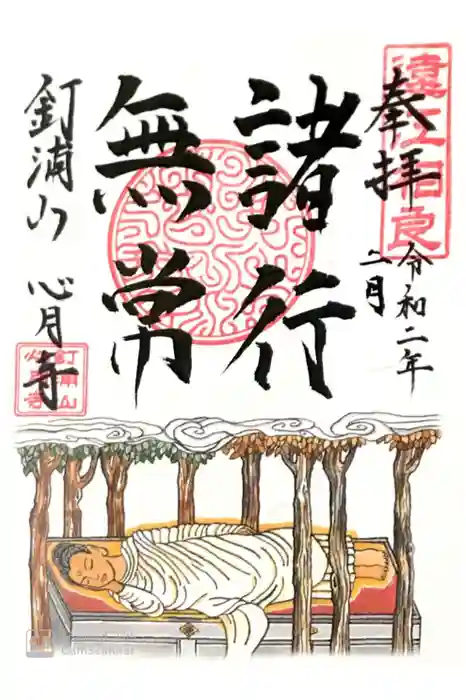 遠江相良
奉拝
令和二年
二月
諸行
無常
釘浦山 心月寺
釘浦山
心月寺
CamScanner